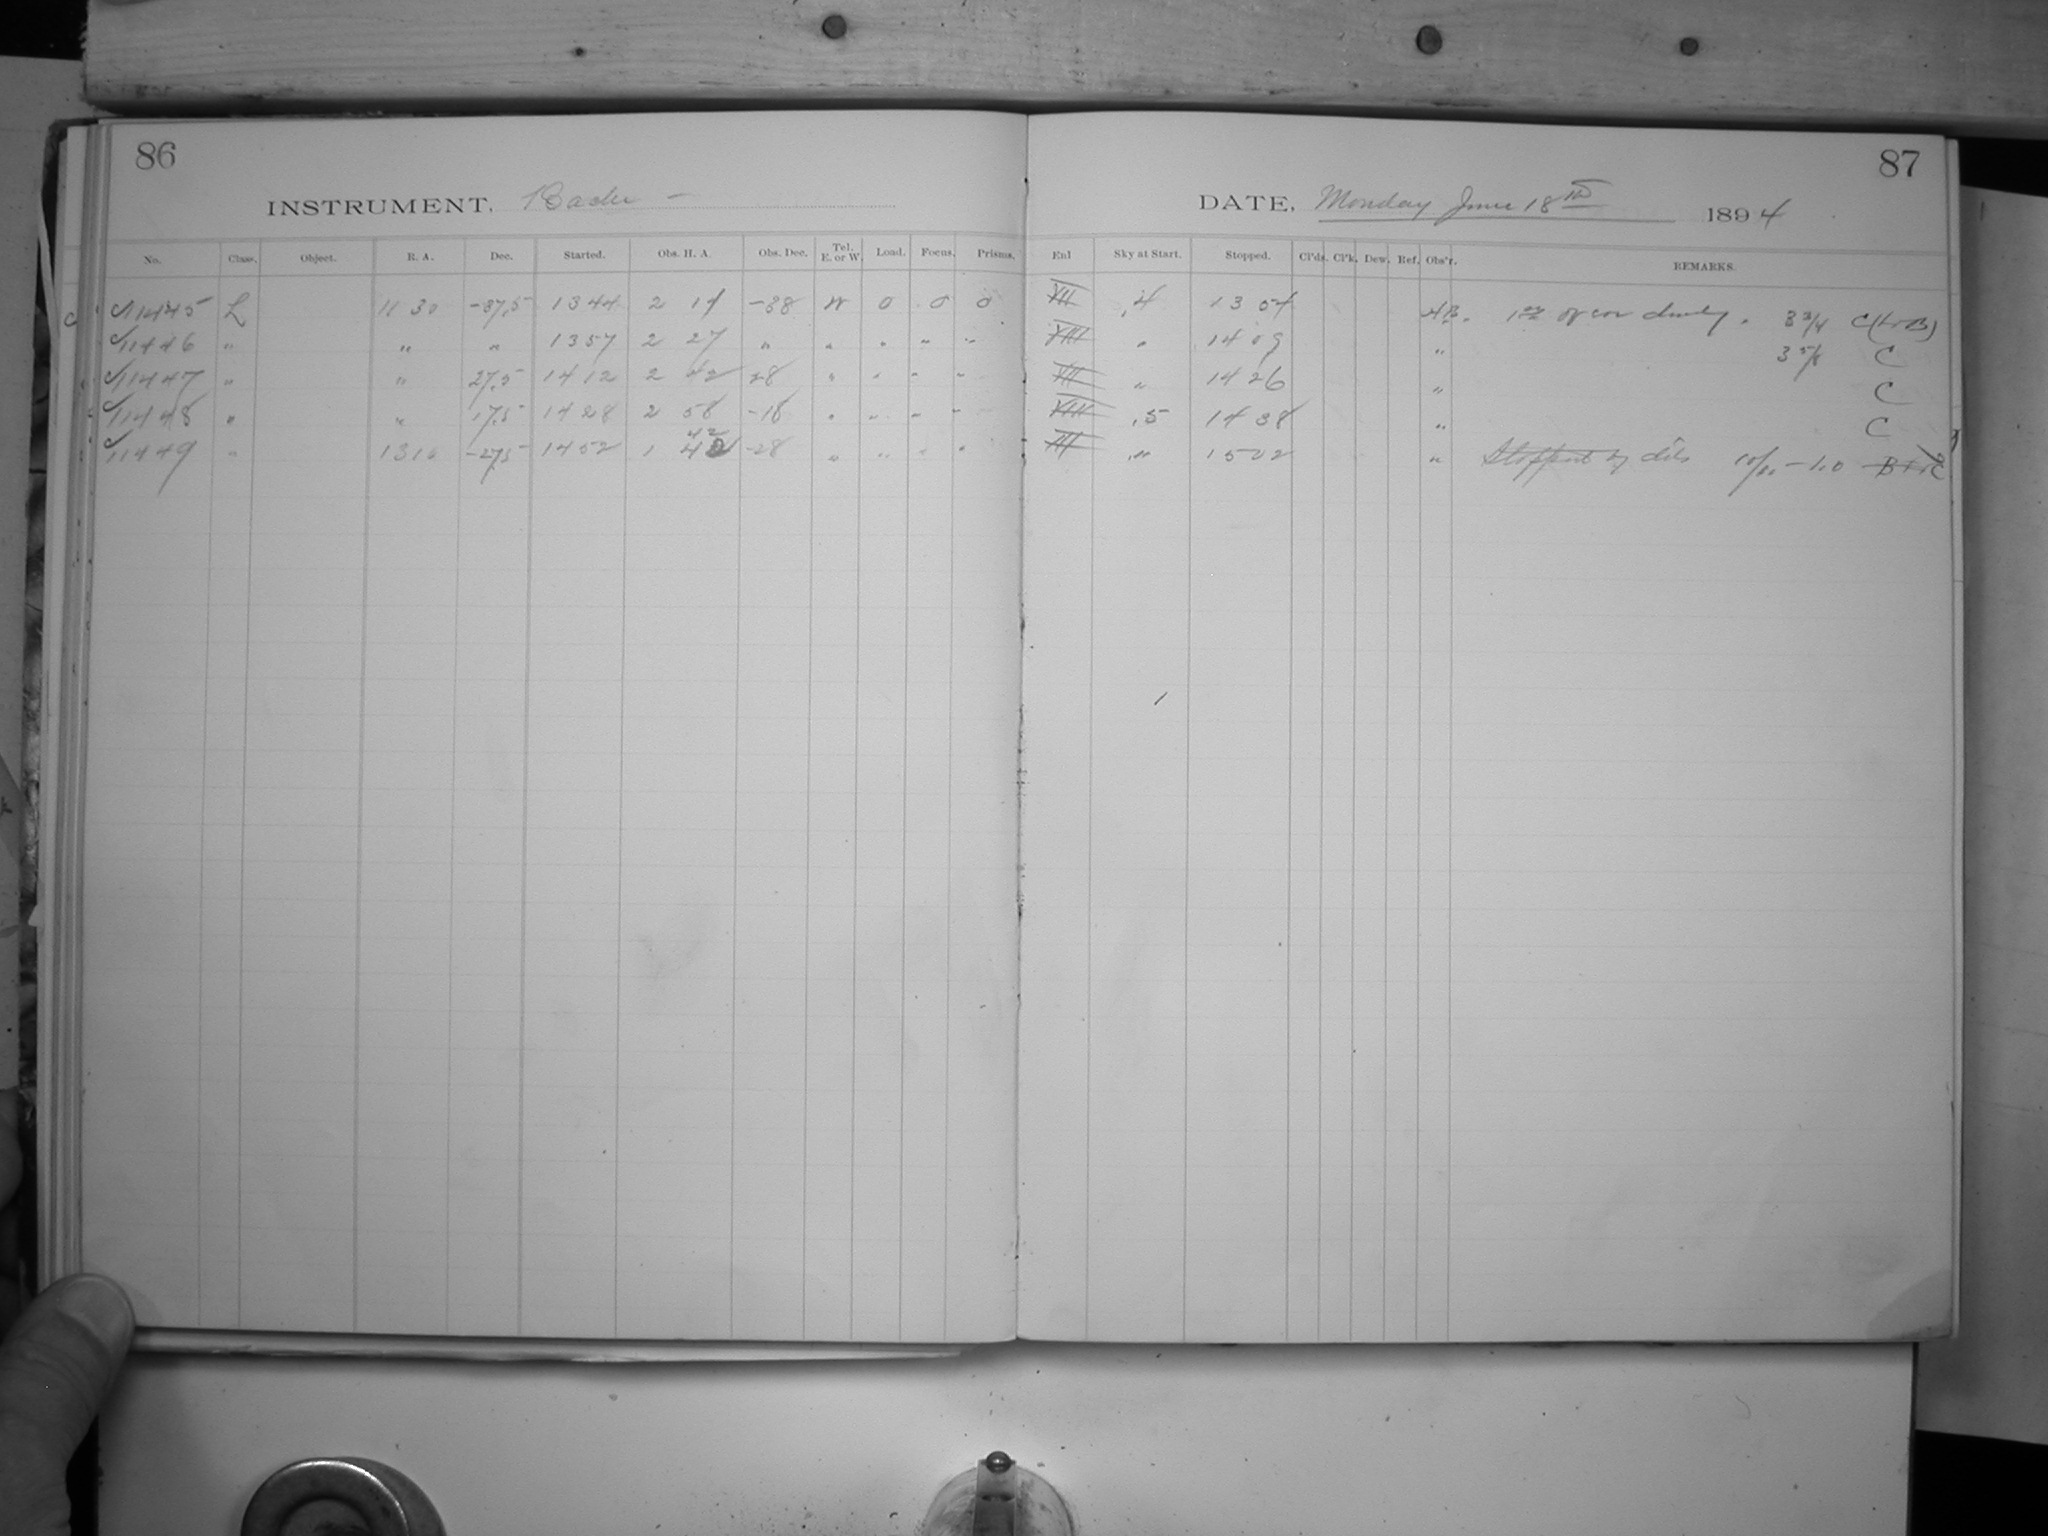 86
INSTRUMENT, Bache –
No. Class. Object. R. A. Dec. Started. Obs. H. A. Obs. Dec. Tel. E. or W. Load. Focus. Prisms.
11445 L 11 30 -37,5 1344 2 14 -38 W 0 0 0
11446 " " " 1357 2 27 " " " " "
11447 " " 27,5 1412 2 42 28 " " " "
11448 " " 17,5 1428 2 58 -18 " " " "
42
11449 " 1310 -27,5 1452 1 -28 " " " "
87
DATE, Monday June 18th 1894
Enl Sky at Start. Stopped. Cl'ds. Cl'k. Dew. Ref. Obs'r. REMARKS.
VII ,4 13 54 AB. of driving. 3 3/4 C (L+B)
VIII " 14 09 " 3 5/8 C
VII " 14 26 " C
VIII ,5 14 38 " C
VII " 1502 " Stopped by 10/60 – 1.0